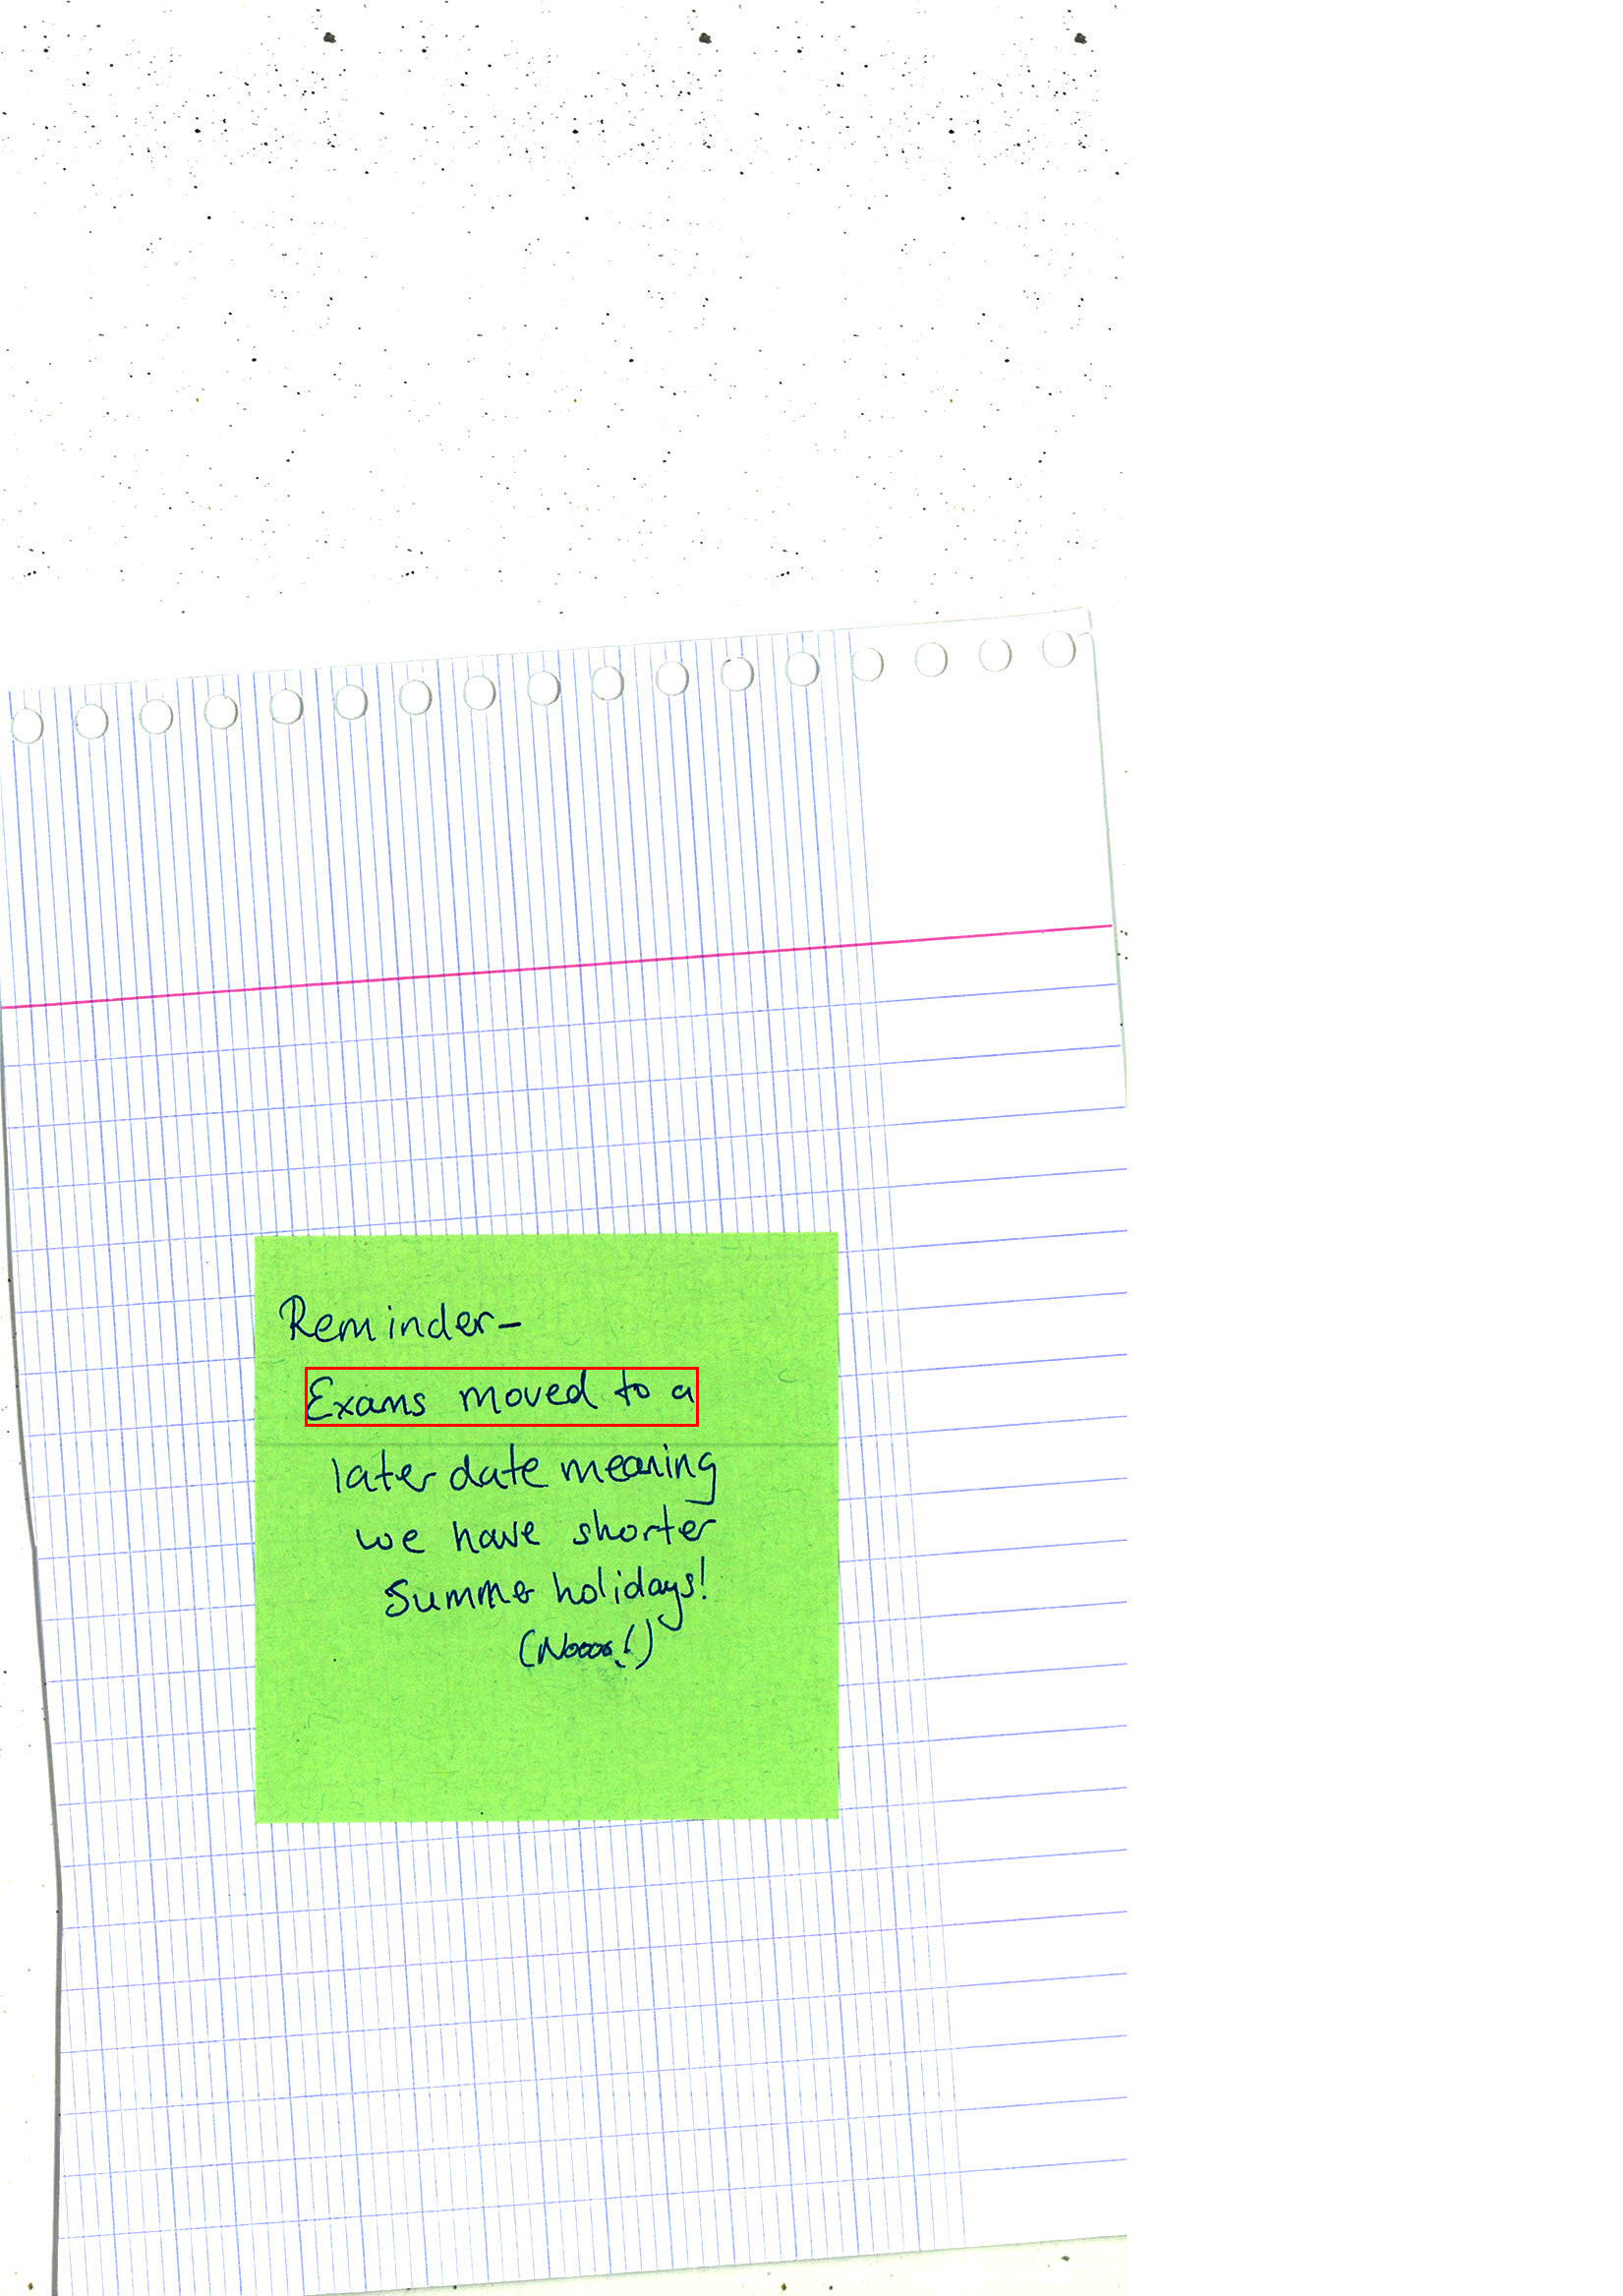 Reminder-
Exams moved to a
later date meaning
we have shorter
Summer holidays!
(Noooo!)